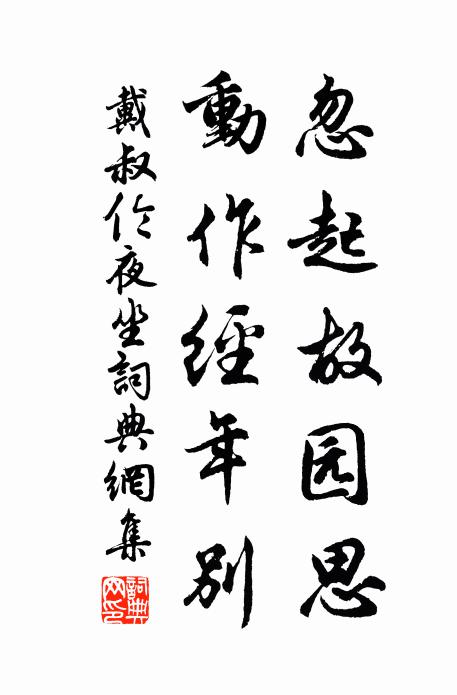 忽起故园思
動作經年別
戴叔伦夜坐詞典網集
詞典網印